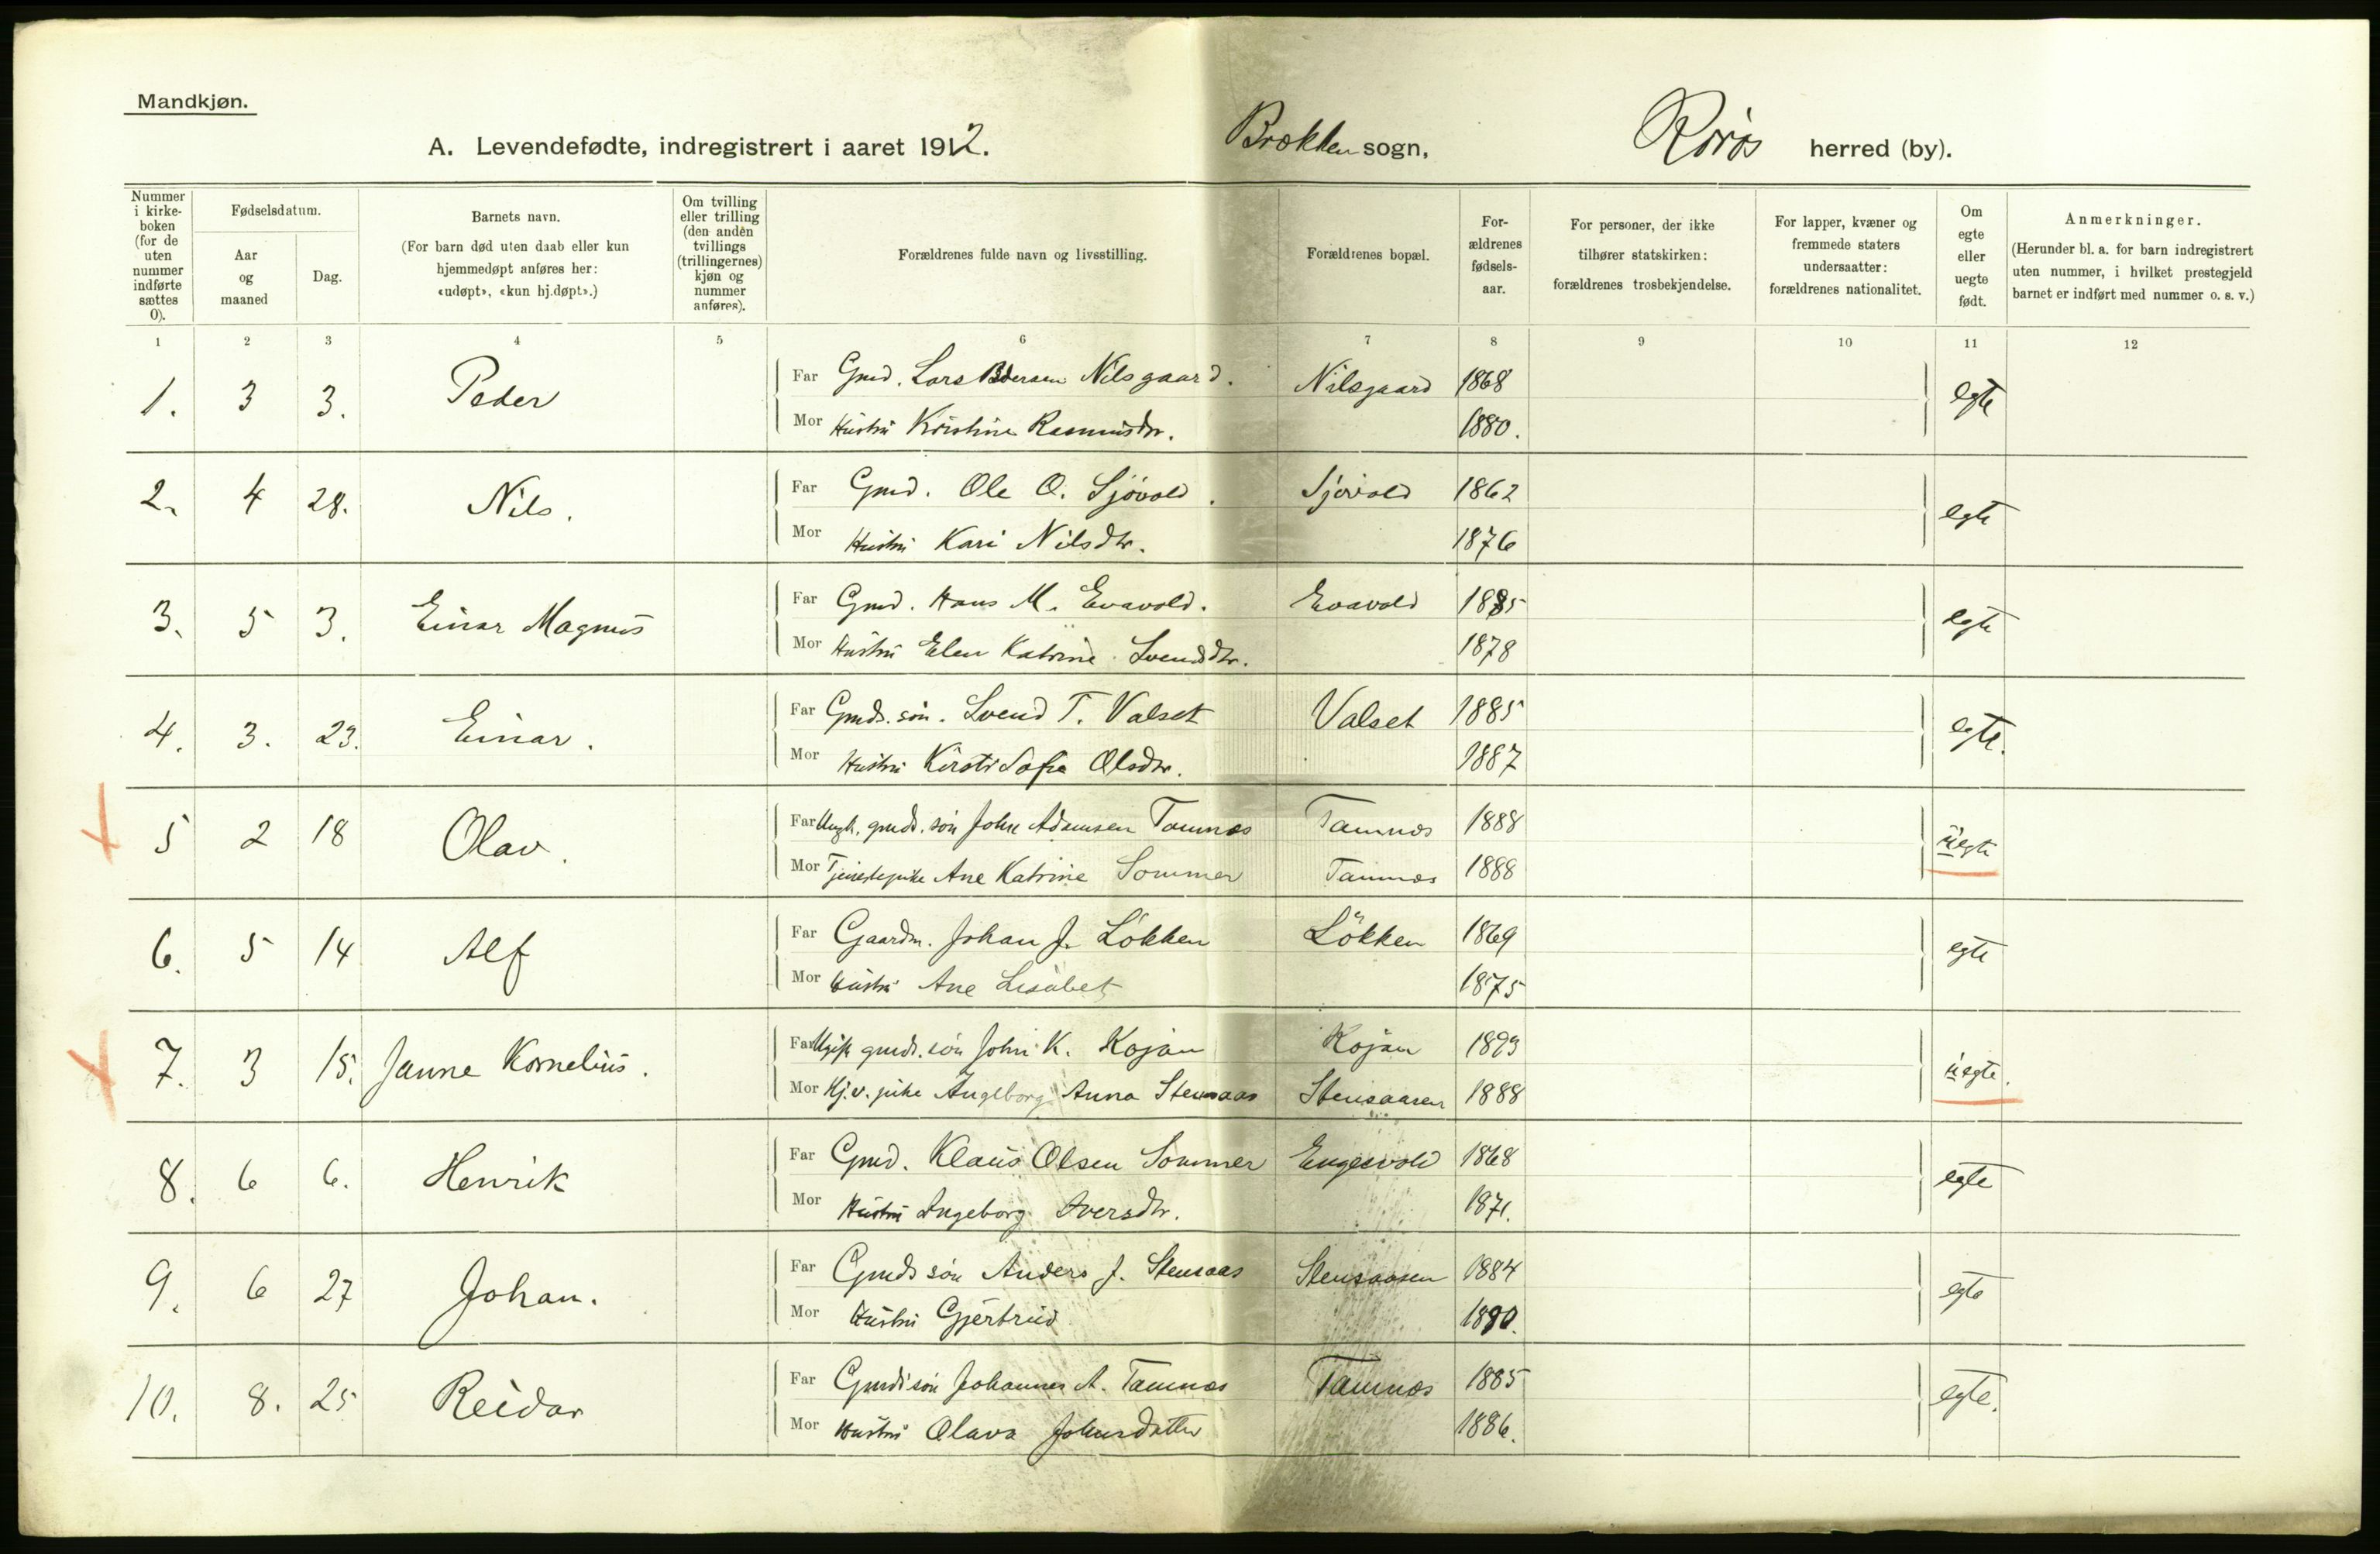 Mandkjøn.
A. Levendefødte, indregistrert i aaret 1912. Brækken sogn, Røros herred (by).
Nummer i kirke-boken (for de uten nummer indførte sættes 0).
Fødselsdatum.
Aar og maaned
Dag.
Barnets navn.
(For barn død uten daab eller kun hjemmedøpt anføres her: «udøpt», «kun hj.døpt».)
Om tvilling eller trilling (den anden tvillings (trillingernes) kjøn og nummer anføres).
Forældrenes fulde navn og livsstilling.
Forældrenes bopæl.
For-ældrenes fødsels-aar.
For personer, der ikke tilhører statskirken: forældrenes trosbekjendelse.
For lapper, kvæner og fremmede staters undersaatter: forældrenes nationalitet.
Om egte eller uegte født.
Anmerkninger.
(Herunder bl. a. for barn indregistrert uten nummer, i hvilket prestegjeld barnet er indført med nummer o. s. v.)
1 2 3 4 5 6 7 8 9 10 11 12
1. 3 3. Peder Far Gmd. Lars Pedersen Nilsgaard. Nilsgaard 1868 egte
Mor Hustru Kristine Rasmusdtr. 1880.
2. 4 28. Nils. Far Gmd. Ole O. Sjövold. Sjövold 1862 egte
Mor Hustru Kari Nilsdtr. 1876
3. 5 3. Einar Magnus Far Gmd. Hans M. Evavold. Evavold 1885 egte
Mor Hustru Elen Katrine Svendsdtr. 1878
4. 3. 23. Einar. Far Gmds. sön. Svend T. Valset Valset 1885 egte.
Mor Hustru Kirsti Sofie Olsdtr. 1887
5 2 18 Olav. Far Ungk. gmds. sön John Adamsen Tamnæs Tamnæs 1888 uegte
Mor Tjenestepike Ane Katrine Sommer Tamnæs 1888
6. 5 14 Alf Far Gaardm. Johan J. Lökken Lökken 1869 egte
Mor Hustru Ane Lisabet 1875
7. 3 15. Janne Kornelius. Far Ugift gmds. sön John K. Kojan Kojan 1893 uegte.
Mor Hj.v. pike Ingeborg Anna Stensaas Stensaasen 1888
8. 6 6. Henrik Far Gmd. Klaus Olsen Sommer Engesvold 1868 egte
Mor Hustru Ingeborg Iversdtr. 1871.
9. 6 27 Johan. Far Gmds sön Anders J. Stensaas Stensaasen 1884 egte
Mor Hustru Gjertrud 1890.
10. 8. 25 Reidar Far Gmds sön Johannes A. Tamnæs Tamnæs 1885 egte.
Mor Hustru Olava Johnsdatter 1886.